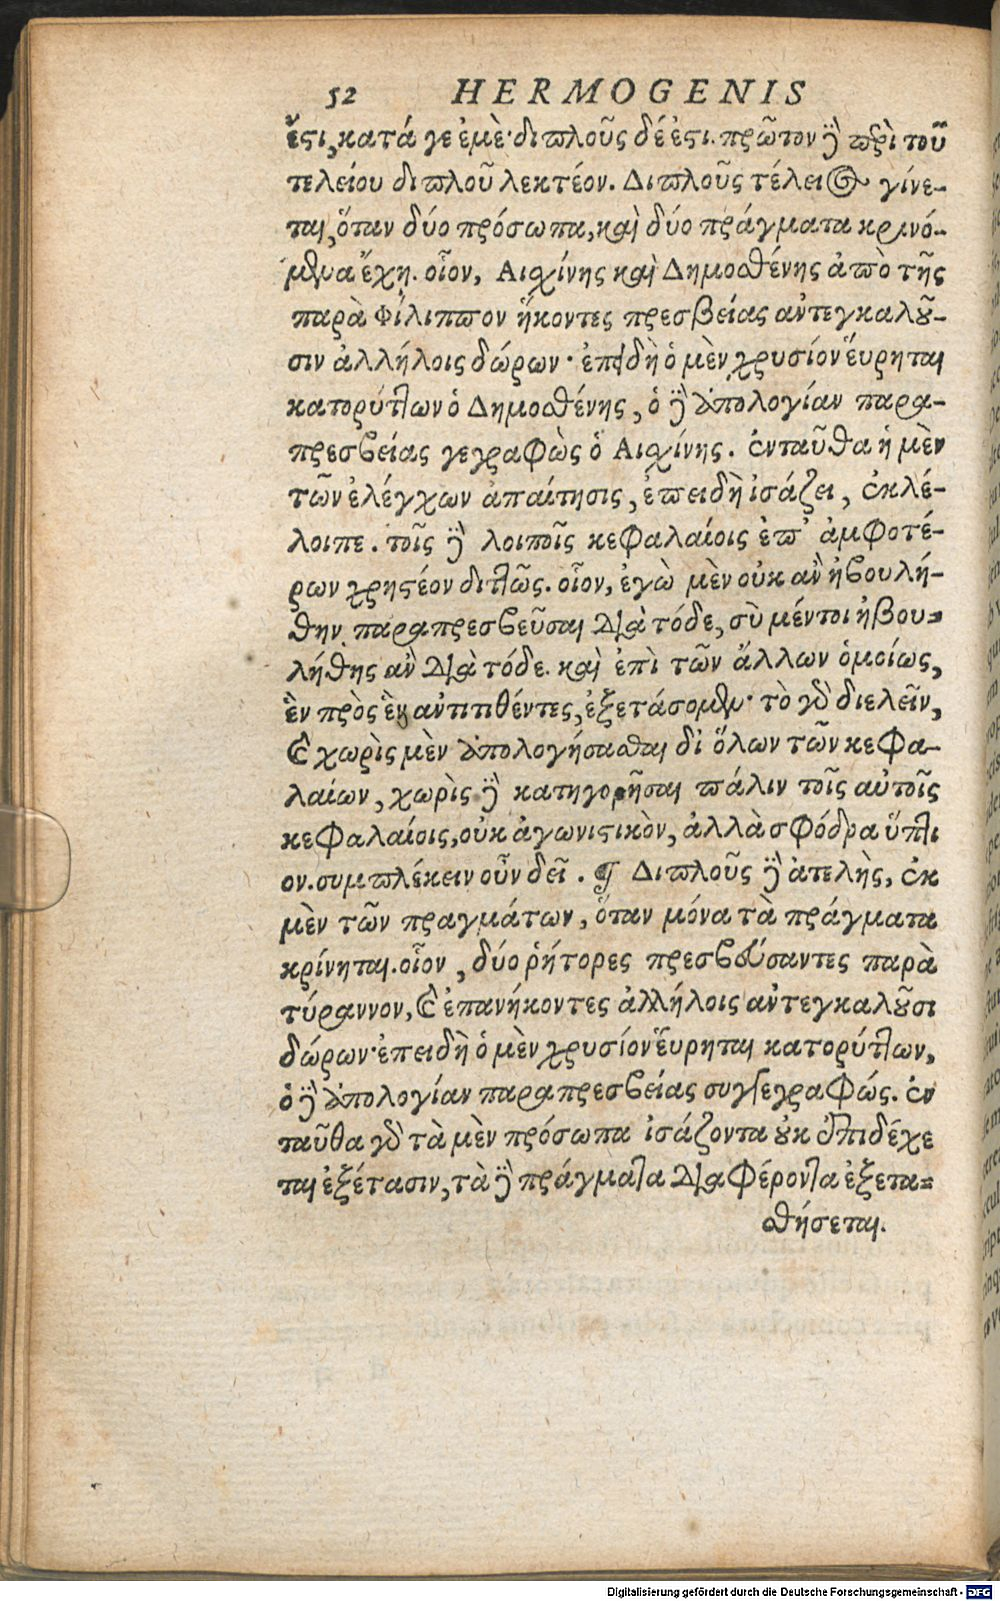 52 HERMOGENIS
ἔστι, κατά γε ἐμὲ· διπλοῦς δέ ἐστι. πρῶτον δὲ περὶ τοῦ
τελείου διπλοῦ λεκτέον. Διπλοῦς τέλειος γίνε-
ται, ὅταν δύο πρόσωπα, καὶ δύο πράγματα κρινό-
μενα ἔχη. οἷον, Αισχίνης καὶ Δημοσθένης ἀπὸ τῆς
παρὰ Φίλιππον ἥκοντες πρεσβείας ἀντεγκαλοῦ-
σιν ἀλλήλοις δώρων· ἐπειδὴ ὁ μὲν χρυσίον ἕυρηται
κατορύττων ὁ Δημοσθένης, ὁ δὲ ἀπολογίαν παρα-
πρεσβείας γεγραφὼς ὁ Αισχίνης. ἐνταῦθα ἡ μὲν
τῶν ἐλέγχων ἀπαίτησις, ἐπειδὴ ἰσάζει, ἐκλέ-
λοιπε. τοῖς δὲ λοιποῖς κεφαλαίοις ἐπ' ἀμφοτέ-
ρων χρηστέον διττῶς. οἷον, ἐγὼ μὲν οὐκ ἂν ἠβουλή-
θην παραπρεσβεῦσαι διὰ τόδε, σὺ μέντοι ἠβου-
λήθης ἂν διὰ τόδε. καὶ ἐπὶ τῶν ἄλλων ὁμοίως,
ἓν πρὸς ἓν ἀντιτιθέντες, ἐξετάσομεν· τὸ γὰρ διελεῖν,
καὶ χωρὶς μὲν ἀπολογήσασθαι δἰ ὅλων τῶν κεφα-
λαίων, χωρὶς δὲ κατηγορῆσαι πάλιν τοῖς αὐτοῖς
κεφαλαίοις, οὐκ ἀγωνιστικὸν, ἀλλὰ σφόδρα ὕπτι
ον. συμπλέκειν οὖν δεῖ. ¶ Διπλοῦς δὲ ἀτελὴς, ἐκ
μὲν τῶν πραγμάτων, ὅταν μόνα τὰ πράγματα
κρίνηται. οἷον, δύο ῥήτορες πρεσβεύσαντες παρὰ
τύραννον, καὶ ἐπανήκοντες ἀλλήλοις ἀντεγκαλοῦσι
δώρων· ἐπειδὴ ὁ μὲν χρυσίον ἕυρηται κατορύττων,
ὁ δὲ ἀπολογίαν παραπρεσβείας συγγεγραφώς. ἐν
ταῦθα γὰρ τὰ μὲν πρόσωπα ἰσάζοντα οὐκ ἐπιδέχε
ται ἐξέτασιν, τὰ δὲ πράγματα διαφέροντα ἐξετα-
σθήσεται.
Digitalisierung gefördert durch die Deutsche Forschungsgemeinschaft - DFG